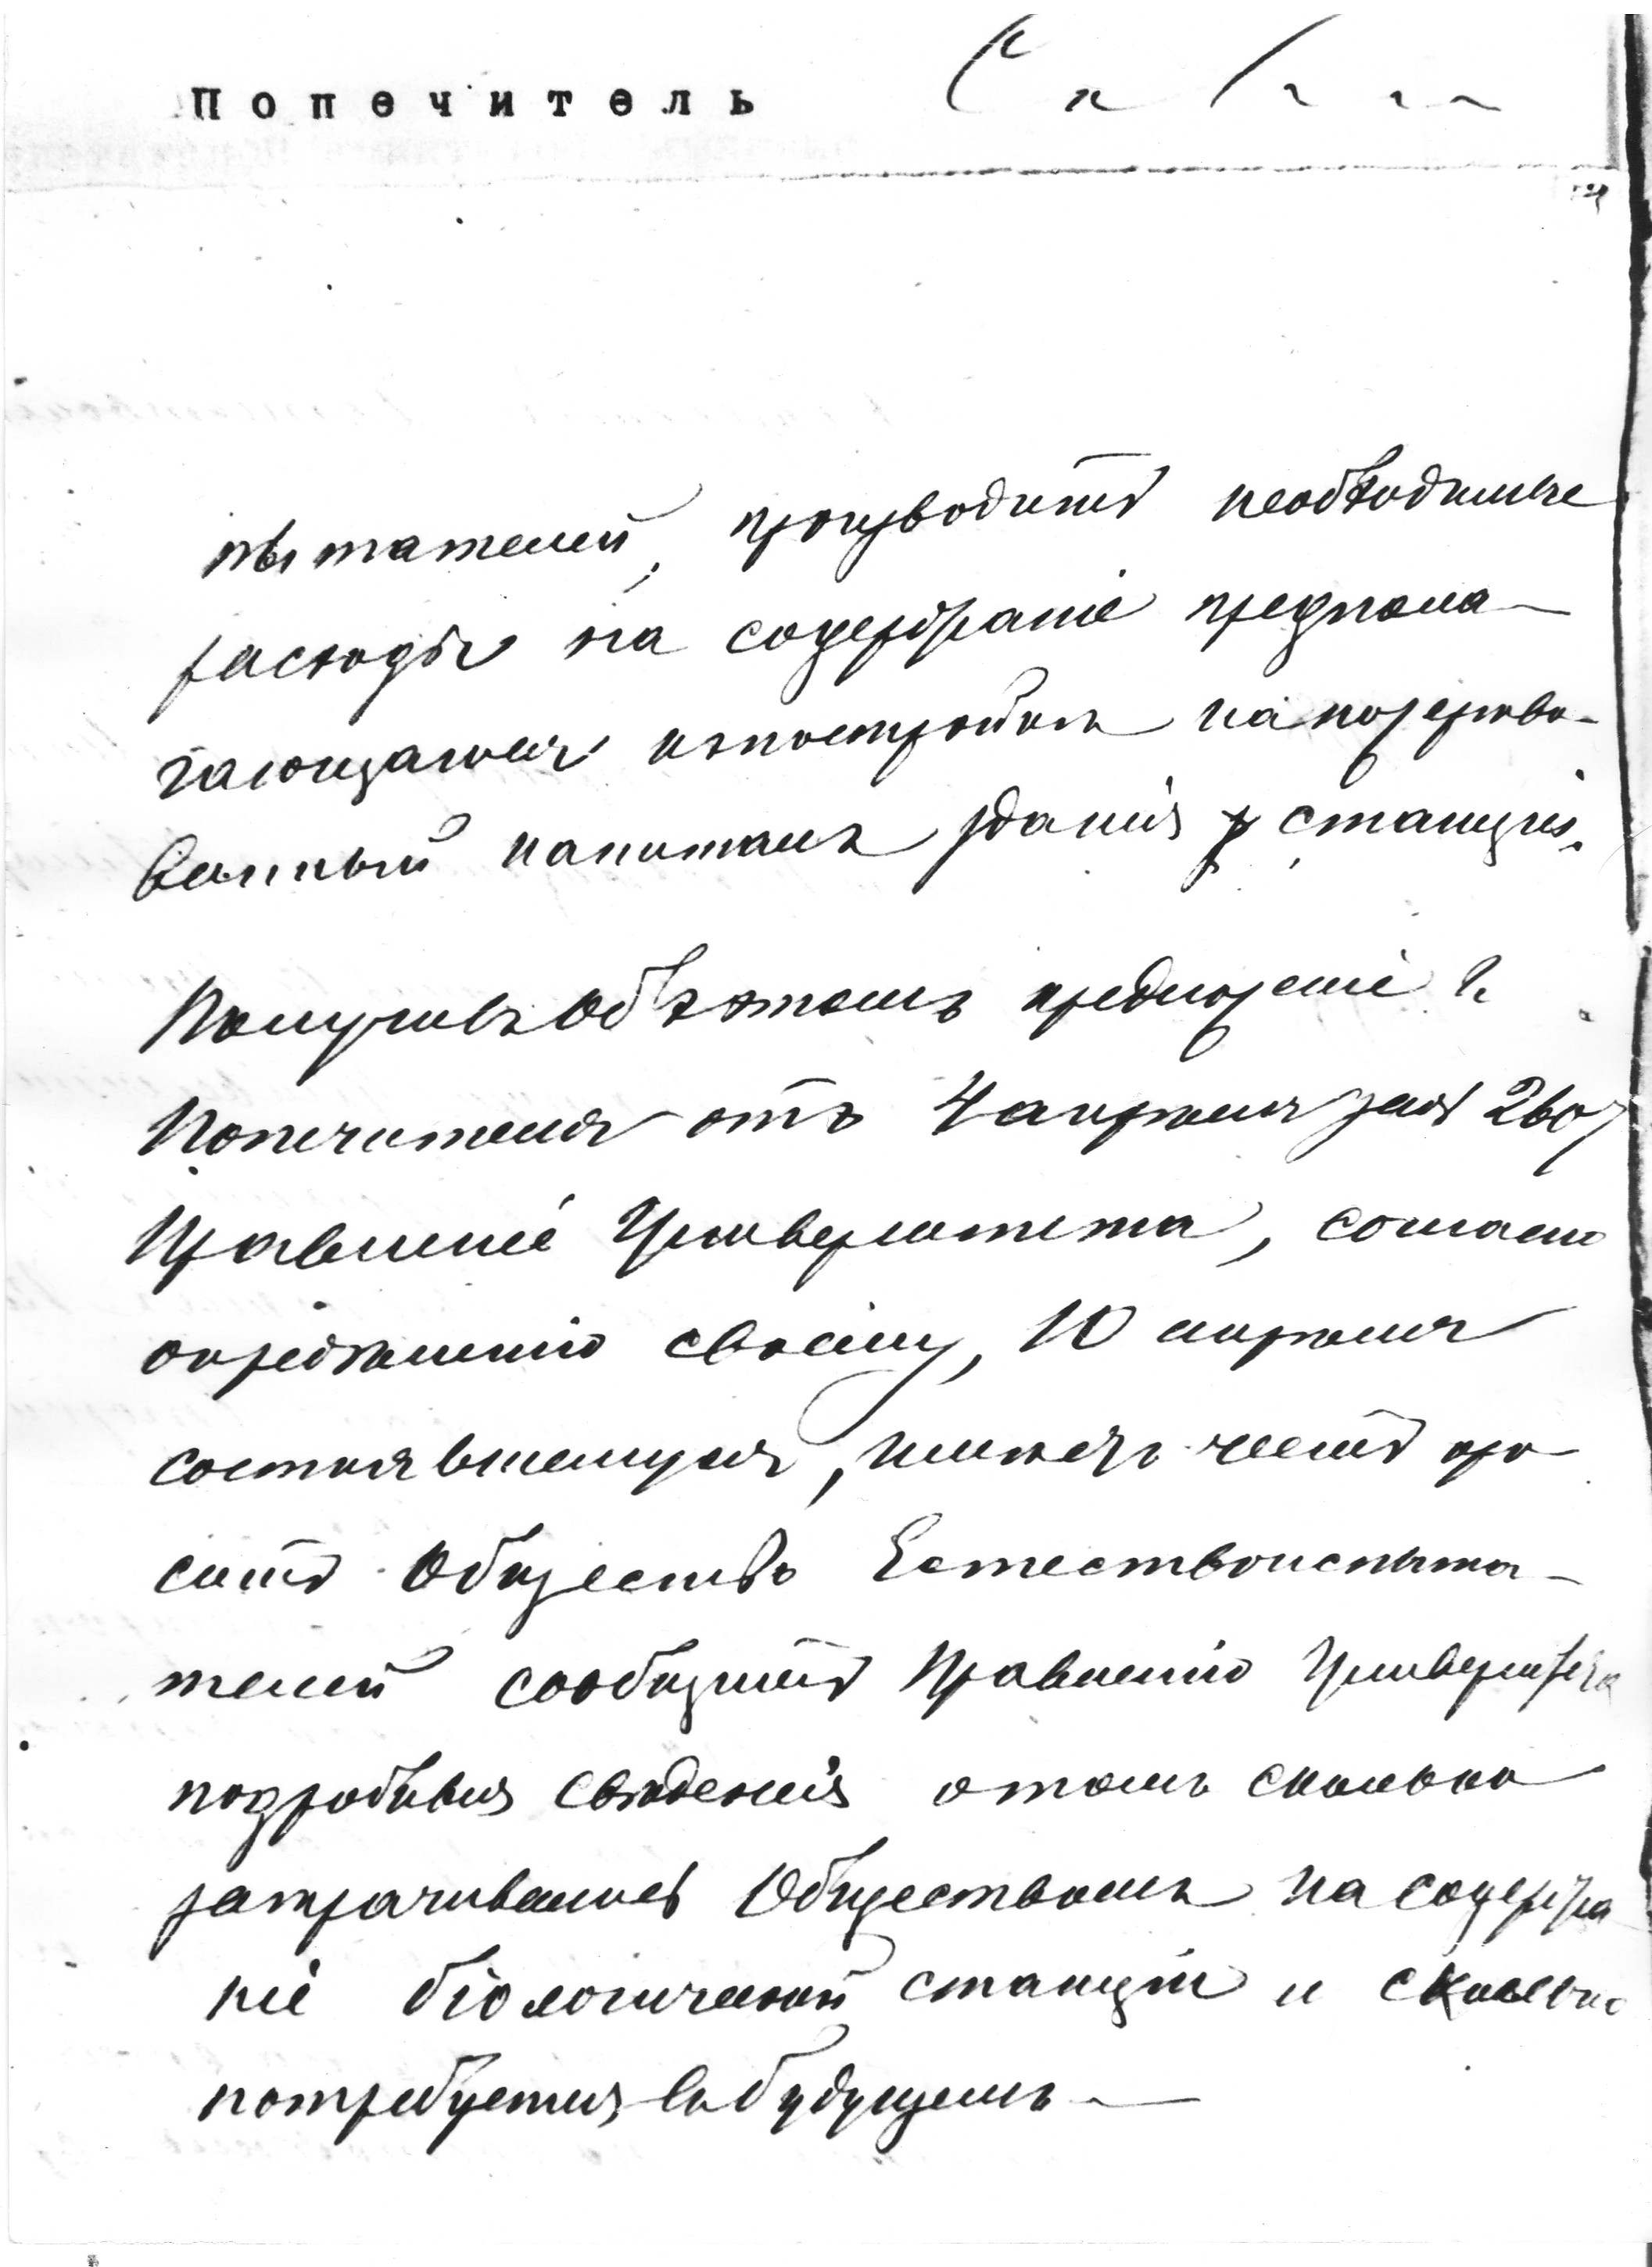 Попечитель
пытателей, производить необходимые
расходы на содержаніе предпола-
гающагося къ постройкѣ на пожертво-
ванный капиталъ зданія станціи.
Получивъ объ этомъ предложеніе Г.
Попечителя отъ 4 апрѣля за № 2607
Правленіе Университета, согласно
опредѣленію своему, 10 апрѣля
состоявшемуся, имѣетъ честь про
сить Общество Естествоиспыта-
телей сообщить Правленію Университета
подробныя свѣдѣнія о томъ сколько
затрачивалось Обществомъ на содержа
ніе біологической станціи и сколько
потребуется въ будущемъ